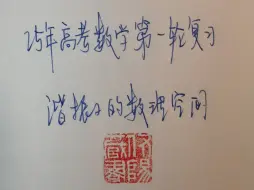 25年高考数学第一轮复习
谐振子的数理空间